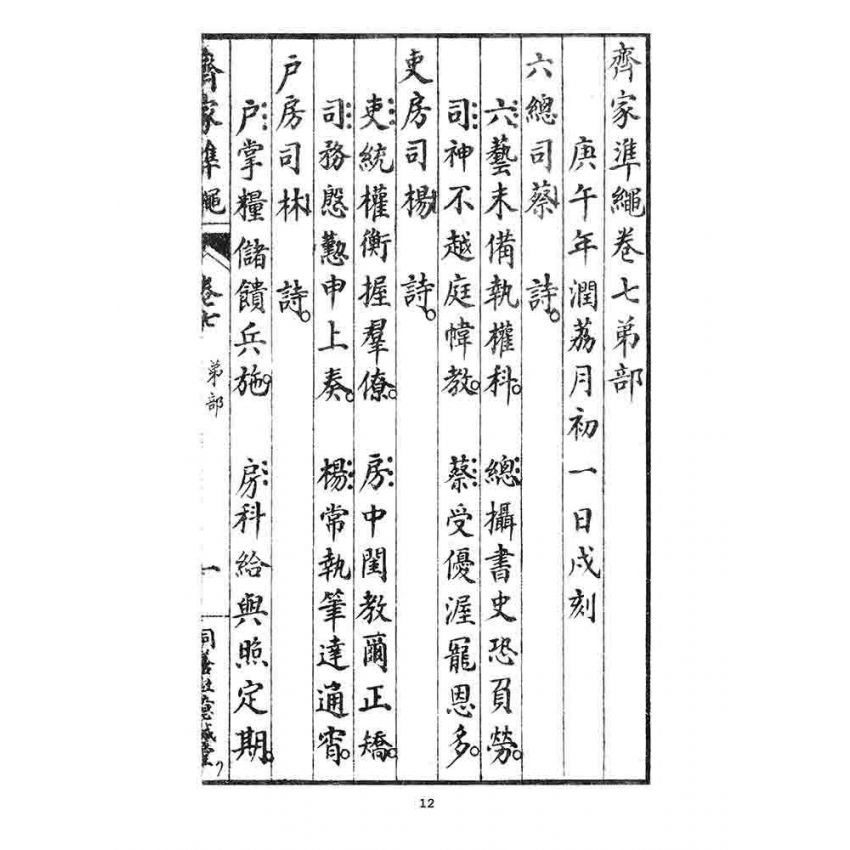 齊家準繩卷七弟部
庚午年潤荔月初一日戌刻
六總司蔡 詩。
六藝未備執權科。 總攝書史恐負勞。
司神不越庭幃教。 蔡受優渥寵恩多。
吏房司楊 詩。
吏統權衡握羣僚。 房中閨教爾正矯。
司務慇懃申上奏。 楊常執筆達通宵。
户房司林 詩。
户掌糧儲饋兵施。 房科給與照定期。
齊家準繩 卷七 弟部 一
12